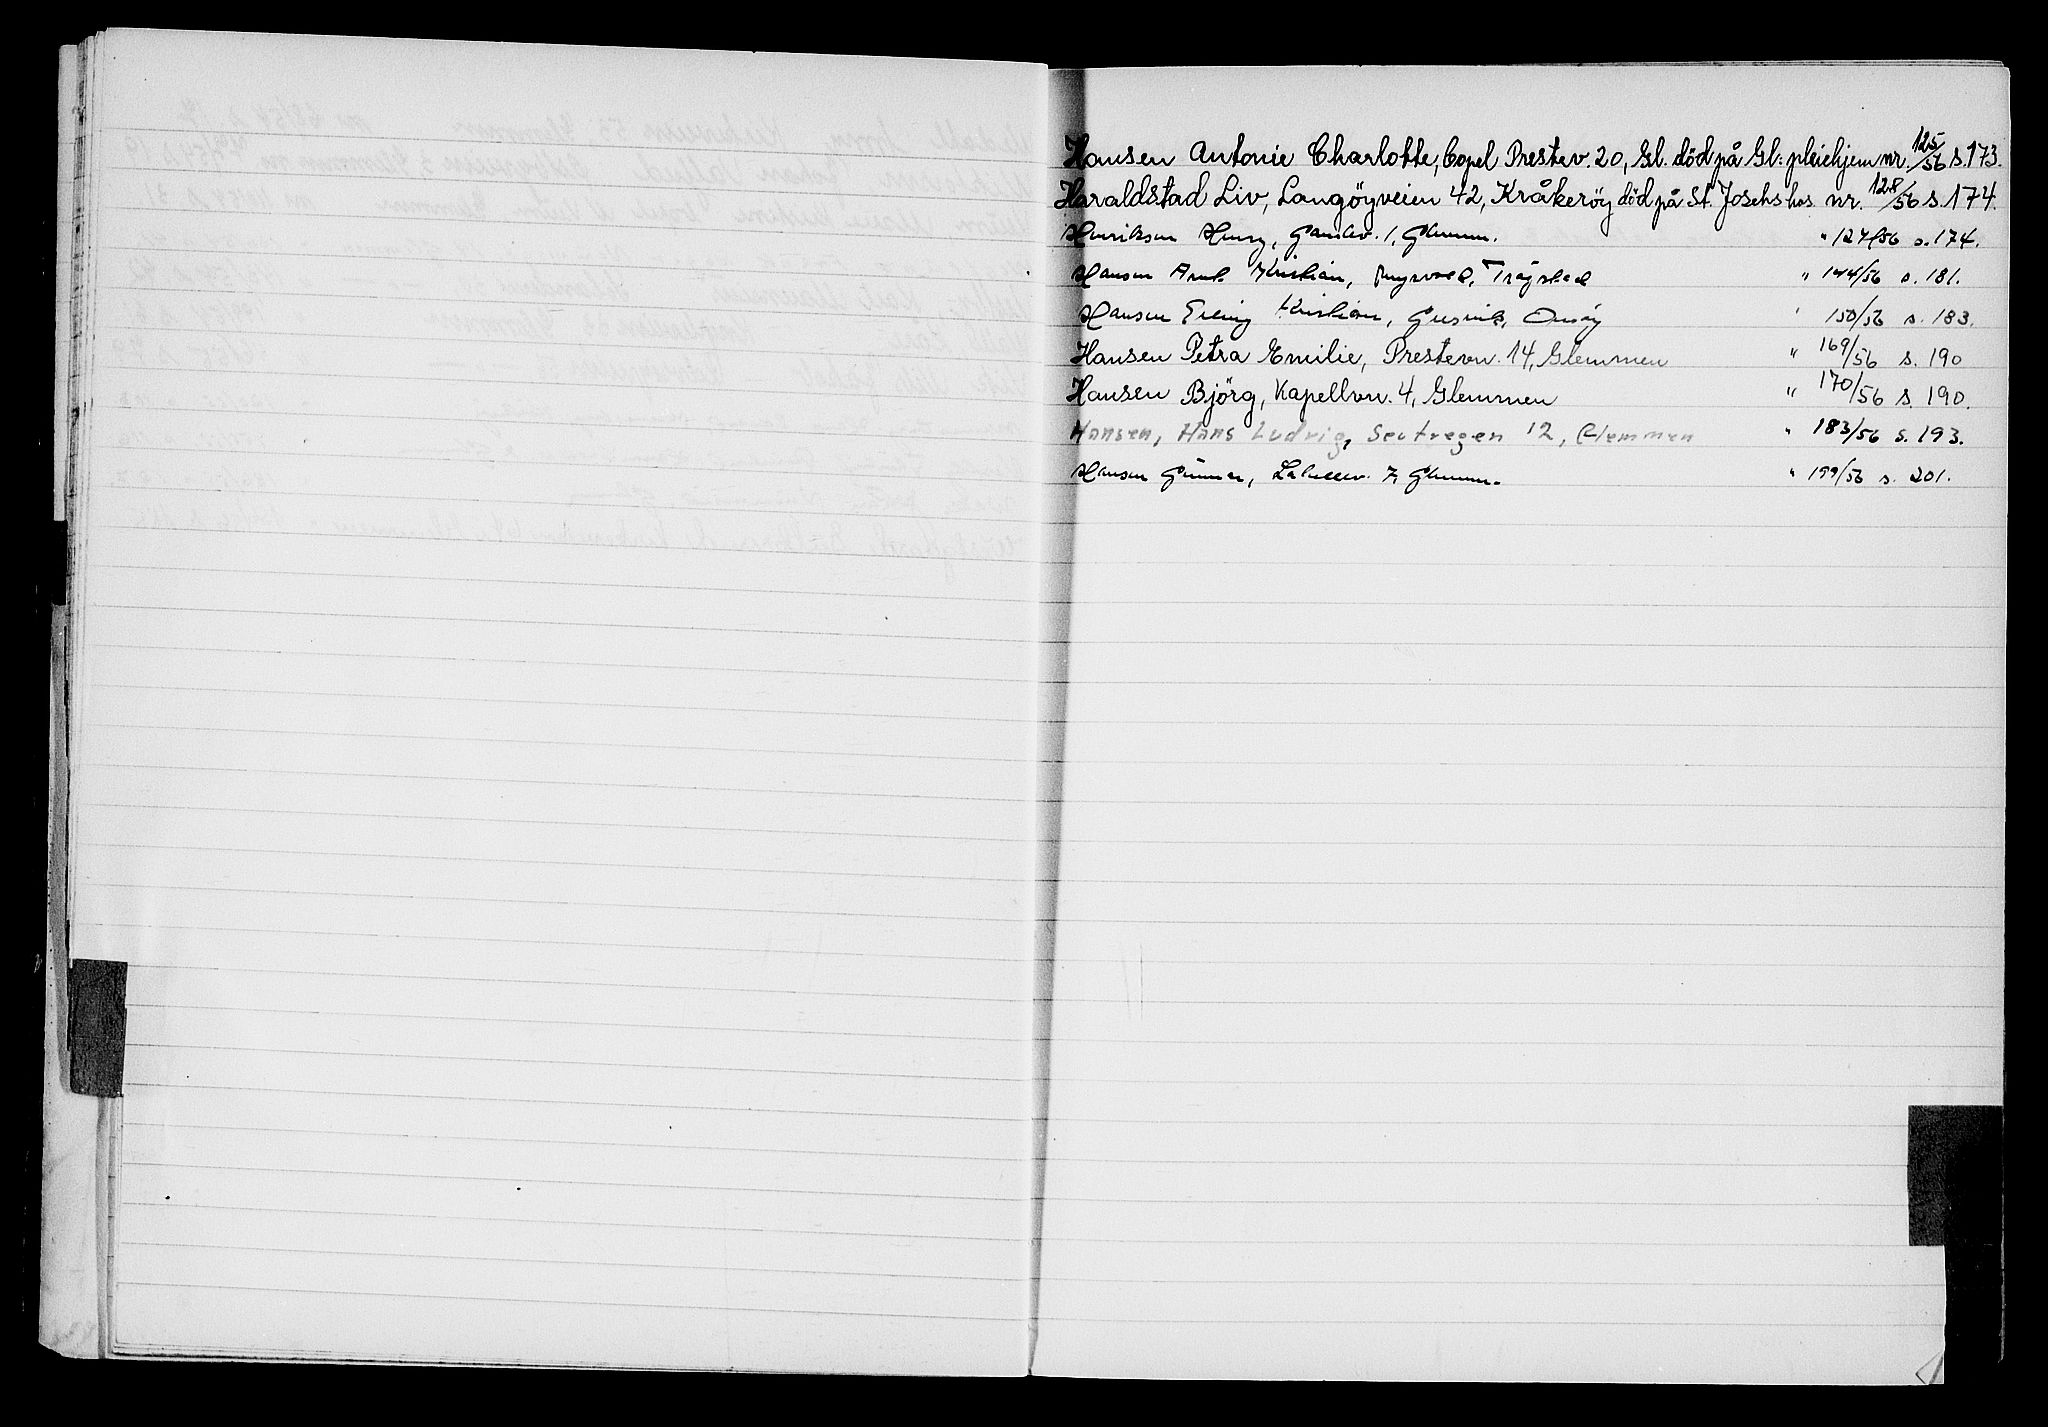 Hansen Antonie Charlotte, Copel Prestev. 20, Gl. död på Gl: pleiehjem nr. 125/56 s. 173.
Haraldstad Liv, Langöyveien 42, Kråkeröy död på St. Josephs hos. nr. 128/56 s. 174.
Henriksen Henry, Gamlev. 1, Glemmen. " 127/56 s. 174.
Hansen Arnt Kristian, Trøgstad " 144/56 s. 181.
Hansen Erling Kristian, Onsøy " 150/56 s. 183.
Hansen Petra Emilie, Prestevn. 14, Glemmen " 169/56 s. 190
Hansen Björg, Kapellvn. 4, Glemmen " 170/56 s. 190.
Hansen, Hans Ludvig, 12, Glemmen " 183/56 s. 193.
Hansen Gunnar, 7, Glemmen. " 199/56 s. 201.